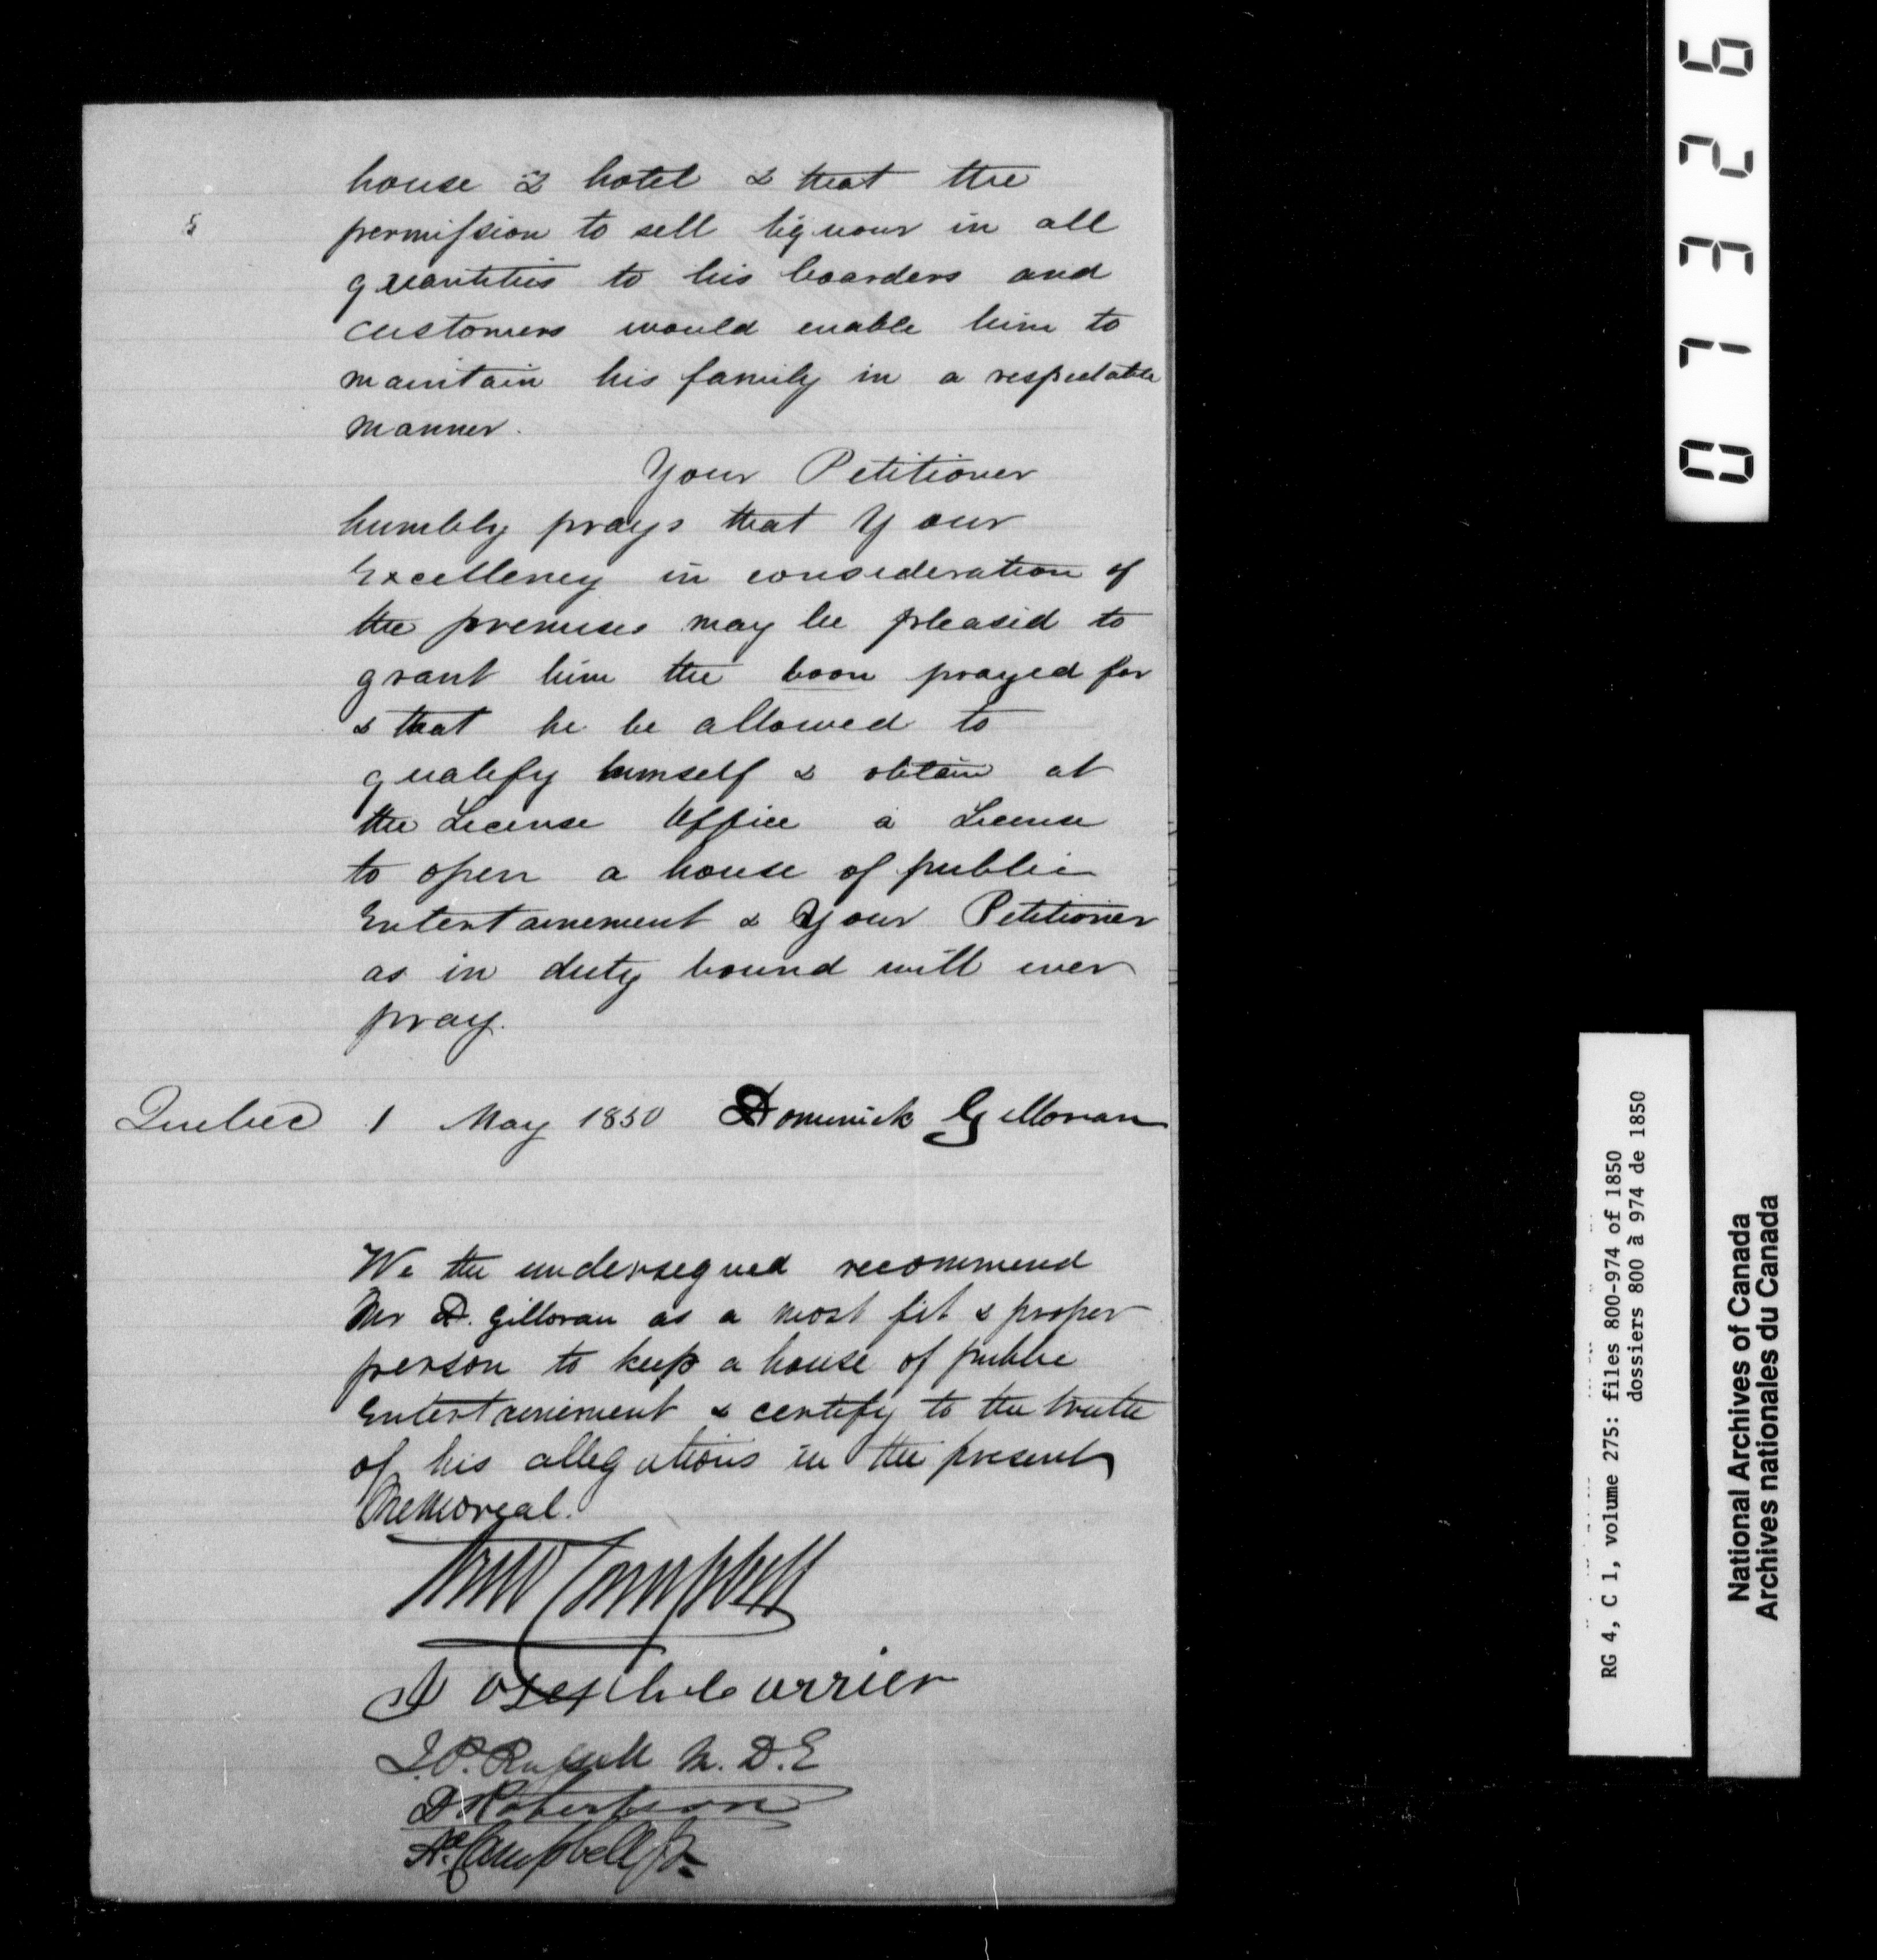 house & hotel & that the
permission to sell liquour in all
quantities to his boarders and
customers would enable him to
maintain his family in a respectable
manner.
Your Petitioner
humbly prays that Your
Excellency in consideration of
the premises may be pleased to
grant him the boon prayed for
& that he be allowed to
qualify himself & obtain at
the License Office a License
to open a house of public
Entertainement & Your Petitioner
as in duty bound will ever
pray.
Quebec 1 May 1850 Dominick Gilloran
We the undersigned recommend
Mr D. Gilloran as a most fit & proper
person to keep a house of public
Entertainement & certify to the truth
of his allegations in the present
Memorial.
Campbell
Joseph Carrier
J.P. Russell M.D.E
D. Robertson
A. Campbell Jr
07326
RG 4, C 1, volume 275: files 800-974 of 1850
dossiers 800 à 974 de 1850
National Archives of Canada
Archives nationales du Canada